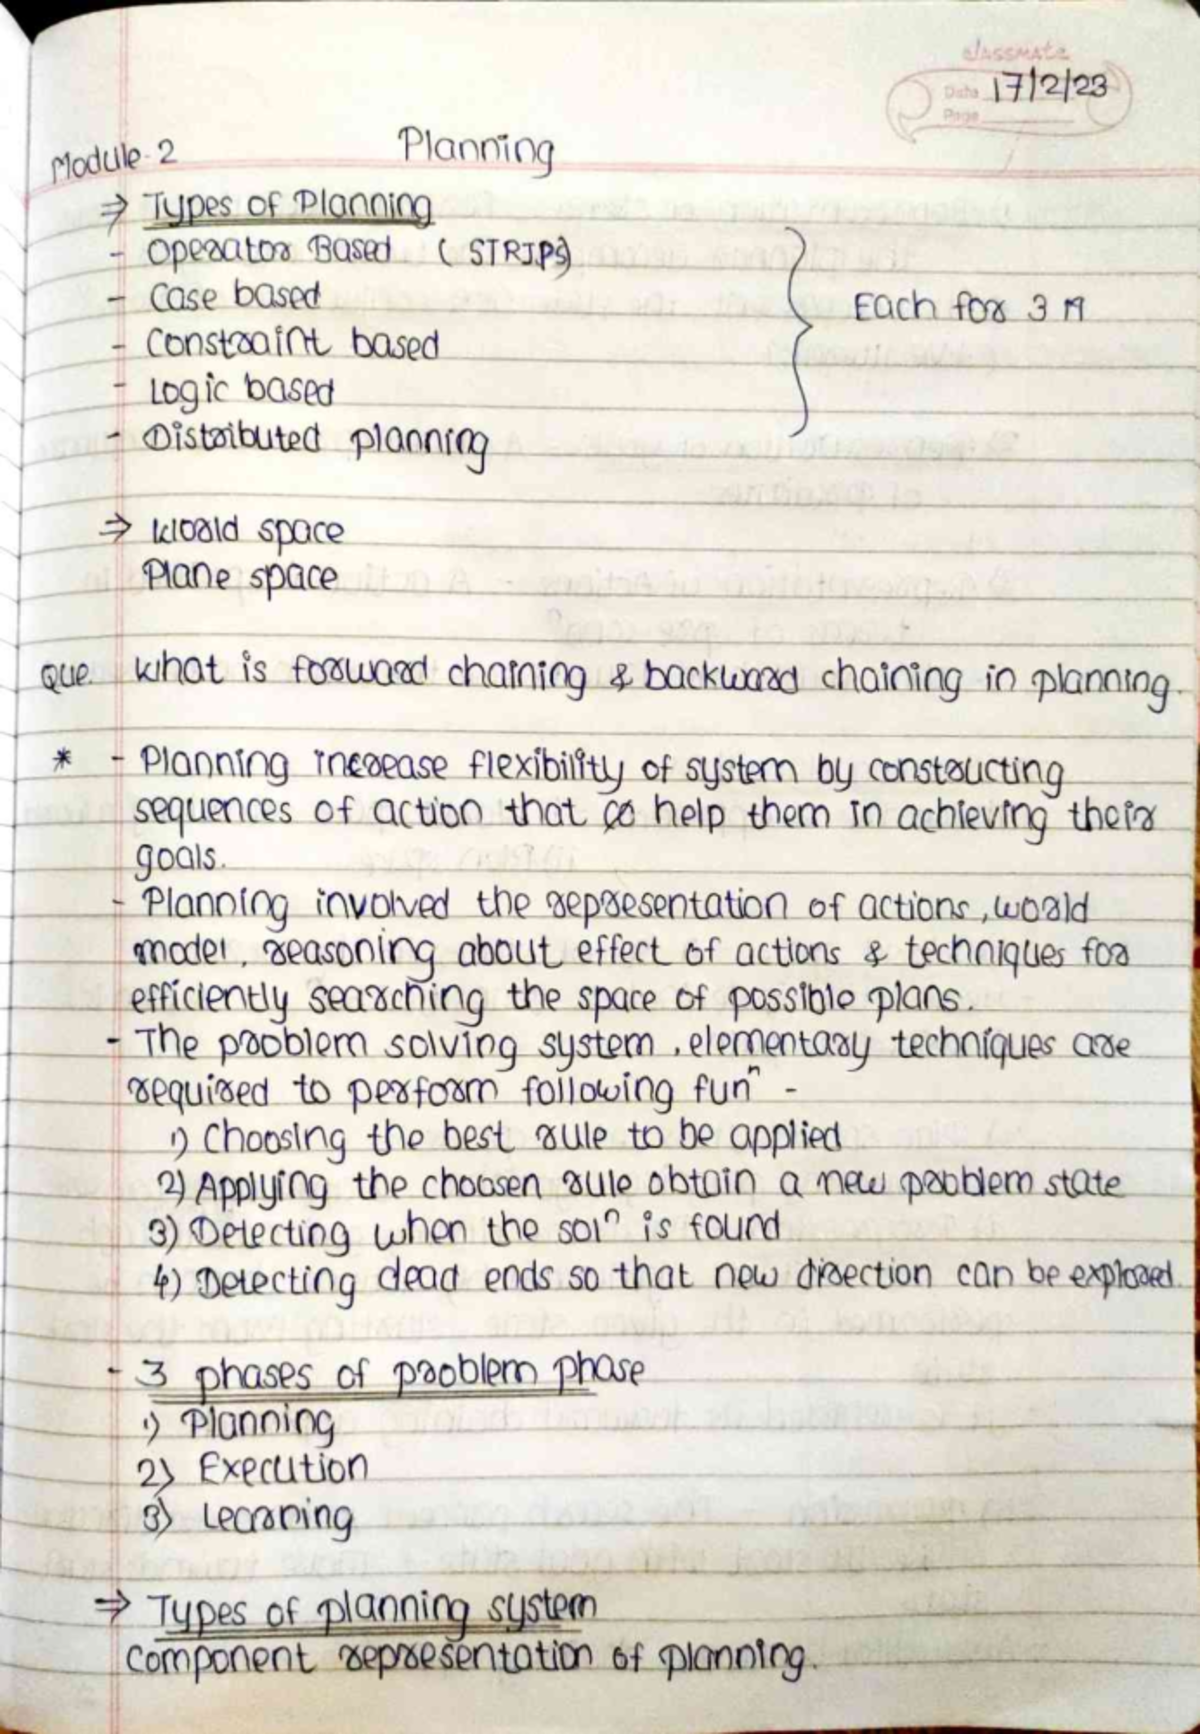 classmate
Date 17/2/23
Page
Module-2 Planning
⇒ Types of Planning
- Operator Based (STRIPS)
- Case based
- Constraint based
- Logic based
- Distributed planning
Each for 3 M
⇒ World space
Plane space
Que. What is forward chaining & backward chaining in planning.
* - Planning increase flexibility of system by constructing
sequences of action that help them in achieving their
goals.
- Planning involved the representation of actions, world
model, reasoning about effect of actions & techniques for
efficiently searching the space of possible plans.
- The problem solving system, elementary techniques are
required to perform following funⁿ -
1) Choosing the best rule to be applied
2) Applying the choosen rule obtain a new problem state
3) Detecting when the solⁿ is found
4) Detecting dead ends so that new direction can be explored.
- 3 phases of problem phase
1) Planning
2) Execution
3) Learning
⇒ Types of planning system
Component representation of planning.